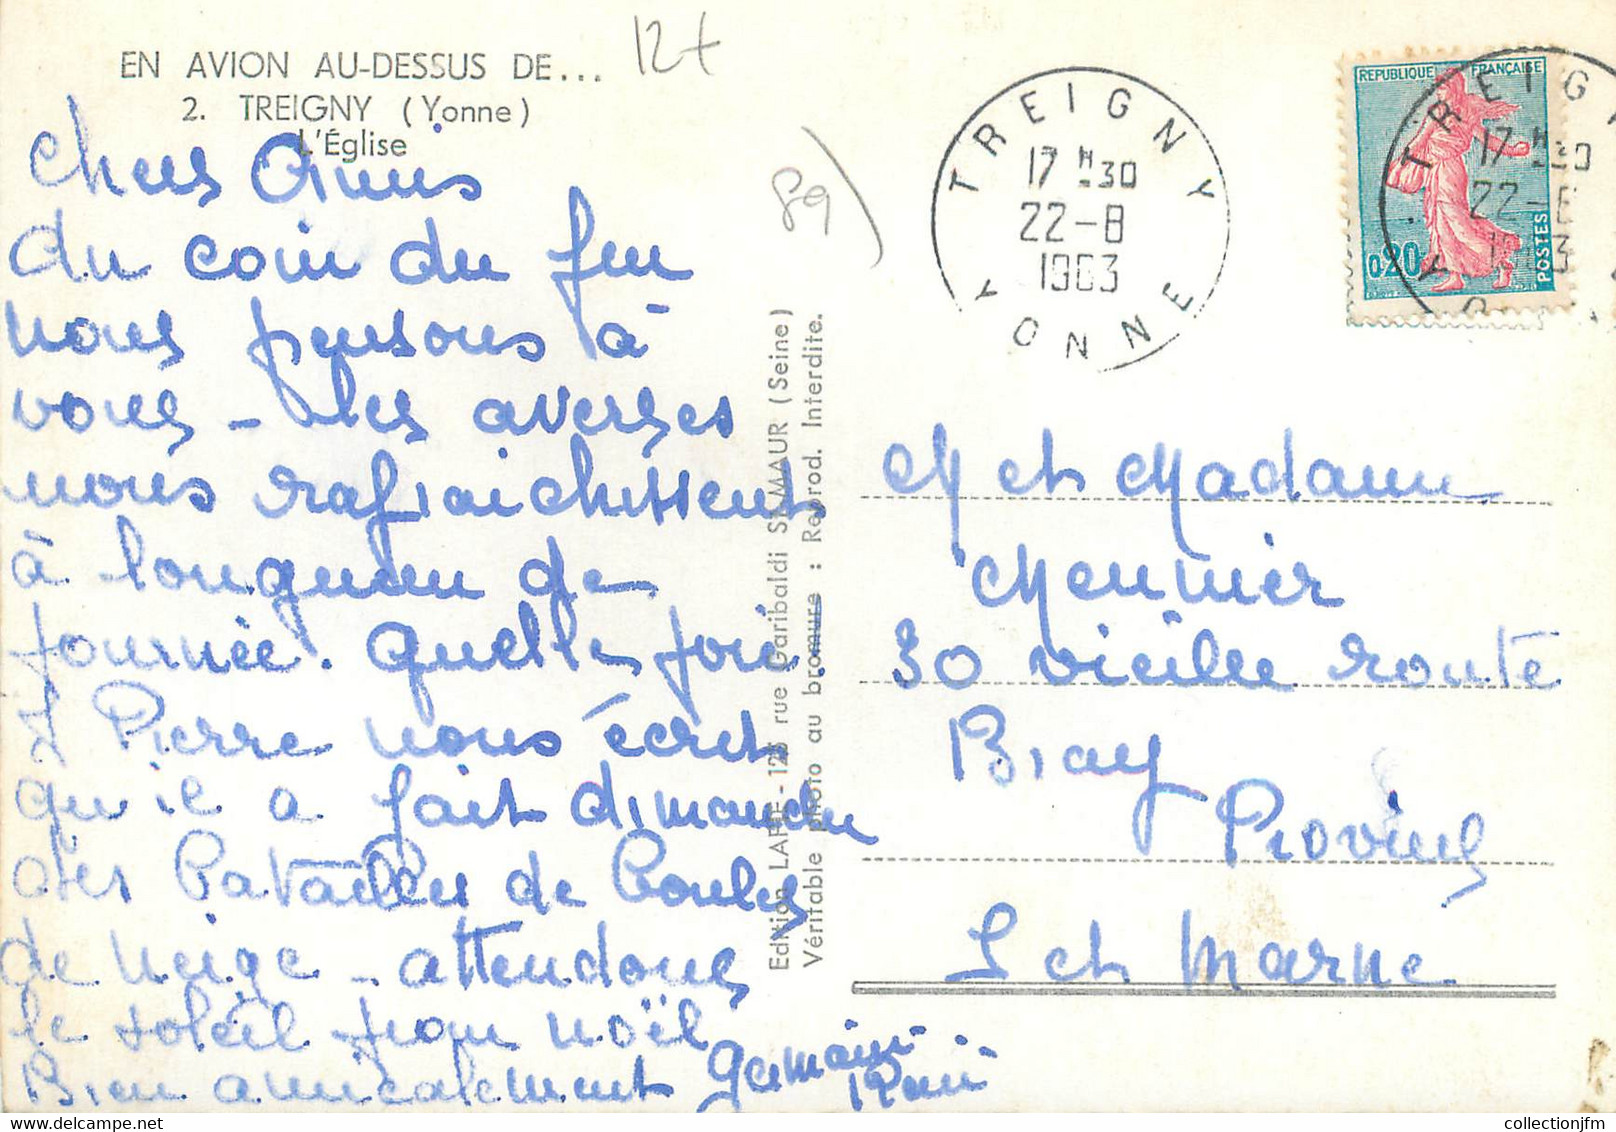 EN AVION AU-DESSUS DE...
2. TREIGNY (Yonne)
L'Église
12t
89)
Chers Amis
du coin du feu
nous pensons à
vous - les averses
nous rafraichissent
à longueur de
journée. quelle joie
J Pierre nous écrit
qu'il a fait dimanche
des Batailles de Boules
de neige - attendons
le soleil pour noël
Bien amicalement Germaine
René
Edition LAPIE - 123 rue Garibaldi ST-MAUR (Seine)
Véritable photo au bromure : Reprod. Interdite.
TREIGNY
17 H 30
22-8
1963
YONNE
REPUBLIQUE FRANÇAISE
0,20
POSTES
TREIGNY
17 H 30
22-8
1963
YO
M et Madame
Meunier
30 vieille route
Bray
Provins
S et Marne
www.collectionjfm.com